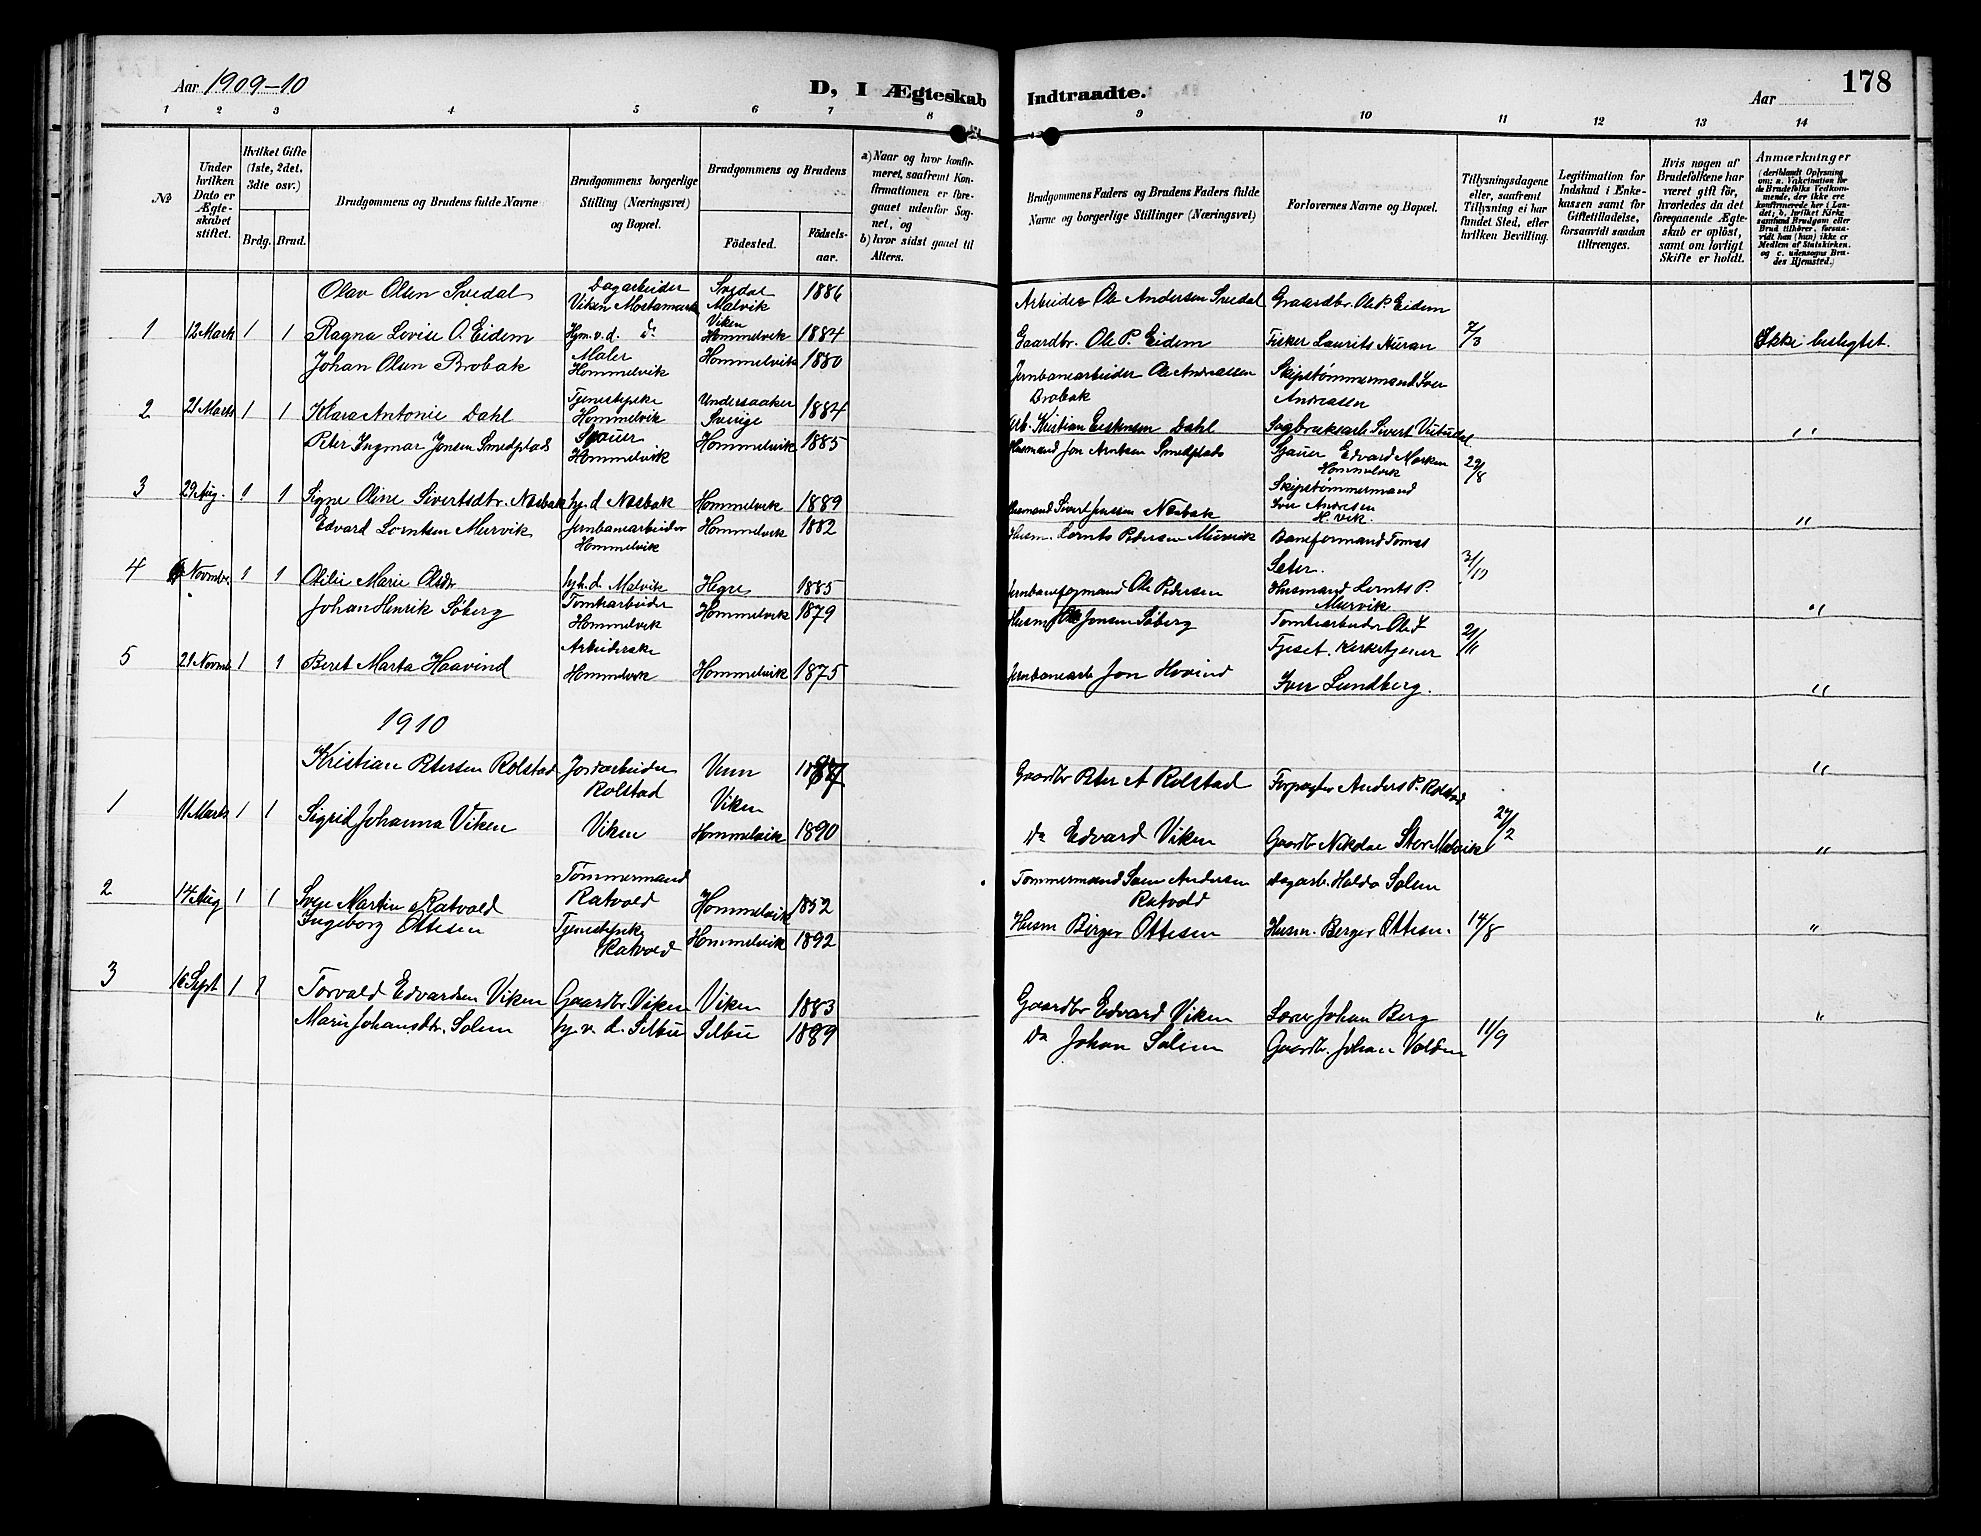 Aar 1909-10
D, I Ægteskab Indtraadte.
Aar
178
1 2 3 4 5 6 7 8 9 10 11 12 13 14
№
Under hvilken Dato er Ægteskabet stiftet.
Hvilket Gifte (1ste, 2det, 3die osv.)
Brdg. Brud.
Brudgommens og Brudens fulde Navne
Brudgommens borgerlige Stilling (Næringsvei) og Bopæl.
Brudgommens og Brudens
Födested.
Födselsaar.
a) Naar og hvor konfirmeret, saafremt Konfirmationen er foregaaet udenfor Sognet, og
b) hvor sidst gaaet til Alters.
Brudgommens Faders og Brudens Faders fulde Navne og borgerlige Stillinger (Næringsvei)
Forlovernes Navne og Bopæl.
Tillysningsdagene eller, saafremt Tillysning ei har fundet Sted, efter hvilken Bevilling.
Legitimation for Indskud i Enkekassen samt for Giftetilladelse, forsaavidt saadan tiltrænges.
Hvis nogen af Brudefolkene har været gift för, hvorledes da det foregaaende Ægteskab er oplöst, samt om lovligt Skifte er holdt.
Anmærkninger (deriblandt Oplysning om: a. Vakcination for de Brudefolks Vedkommende, der ikke ere konfirmerede her i Landet; b. hvilket Kirkesamfund Brudgom eller Brud tilhörer, forsaavidt han (hun) ikke er Medlem af Statskirken. og c. udensogns Brudes Hjemsted.)
Olav Olsen Svedal Dagarbeider Viken Mostamark Svedal Malvik 1886 Arbeider Ole Andersen Svedal Gaardbr. Ole P. Eidem
1 12 Marts 1 1 Ragna Lovise O. Eidem Hjm. v. d. do Viken Hommelvik 1884 Gaardbr. Ole P. Eidem Fisker Laurits 7/3 Ikke beslegtet.
Johan Olsen Brobak Maler Hommelvik Hommelvik 1880 Jernbanearbeider Ole Andreassen Brobak Skipstømmermand Iver Andreassen
2 21 Marts 1 1 Klara Antonie Dahl Tjenestepike Hommelvik Undersaaker Sverige 1884 Arb. Kristian Dahl Sagbruksarb. Sivert "
Peter Ingmar Jonsen Smedplads Hommelvik Hommelvik 1885 Husmand Jon Arntsen Smedplads Edvard Marken Hommelvik 29/8
3 29 Aug. 1 1 Signe Oline Sivertsdtr. Næsbak hj. d Næsbak Hommelvik 1889 Husmand Sivert Jenssen Næsbak Skipstømmermand Iver Andresen H.vik. "
Edvard Lorntsen Mursvik Jernbanearbeider Hommelvik Hommelvik 1882 Husm. Lornts Pedersen Mursvik Baneformand Tomas Seter. 31/10
4 Novmbr. 1 1 Otilie Marie Olsdr hj. h. d. Malvik Hegre 1885 Jernbaneformand Ole Pedersen Husmand Lornts P. Mursvik "
Johan Henrik Søberg Tomtearbeider Hommelvik Hommelvik 1879 Husm Jonsen Søberg Tomtearbeider Ole J 21/11
5 21 Novmb 1 1 Beret Marta Haavind Arbeiderske Hommelvik Hommelvik 1875 Jernbanearb Jon Hovind Tjeset. Kirketjener Iver Lundberg. "
1910
Kristian Petersen Rolstad Jordarbeider Rolstad Venn 1887 Gaardbr Peter A Rolstad Forpagter Anders P. Rolstad "
1 11 Marts 1 1 Sigrid Johanna Viken Viken Viken Hommelvik 1890 Do Edvard Viken Gaardbr Nikolai Stor Malvik 27/2 "
2 14 Aug 1 1 Martin Ratvold Tømmermand Ratvold Hommelvik 1852 Tømmermand Andersen Ratvold Dagarb. Haldo Solem
Ingeborg Ottesen Tjenestepike Ratvold Hommelvik 1892 Husm Birger Ottesen Husm. Berger Ottesen. 14/8 "
3 16 Sept 1 1 Torvald Edvardsen Viken Gaardbr Viken Viken 1883 Gaardbr Edvard Viken Lærer Johan Berg "
Marie Johansdtr. Solem hj. v. d. Selbu Selbu 1889 Do Johan Solem Gaardbr. Johan Volden 11/9